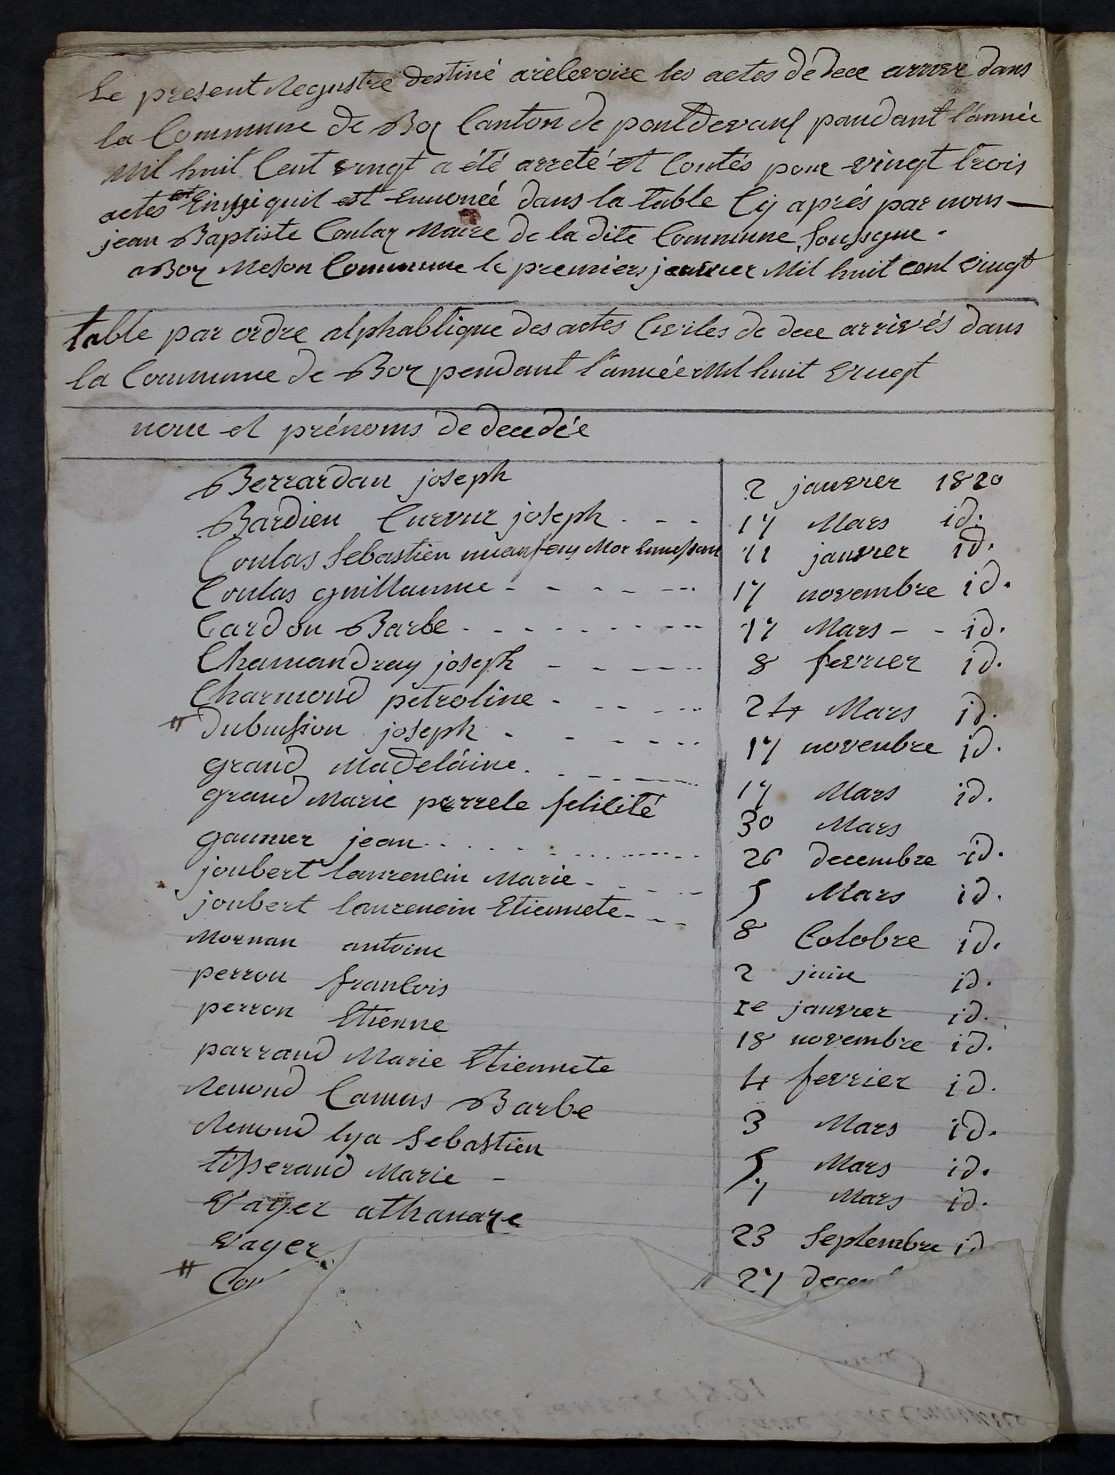 Le present Regustre destiné arelevoire les actes de dece arriver dans
la Commune de Boz Canton de pontdevaux pandant l'année
Mil huit Cent vingt a été arreté et Contés pour vingt trois
actes et Einssi quil est Ennoncé dans la table Cy aprés par nous
jean Baptiste Coulaz Maire de la dite Commune Soussigne.
a Boz Meson Commune le premiers janvier Mil huit cent vingt
table par ordre alphabtique des actes Cerles de dece arrivés dans
la Commune de Boz pendant l'année Mil huit vingt
nom et prénoms de decedée
Berrardan joseph 2 janvrer 1820
Bardien joseph 17 Mars id.
Coulas Sebastien 11 janvrer id.
Coulas guillaumme 17 novembre id.
Cardon Barbe 17 Mars id.
Chamandray joseph 8 fevrier id.
Charmond petroline 24 Mars id.
dubuission joseph 17 novenbre id.
grand Madeléine 17 Mars id.
grand Marie perrele felicité 30 Mars
gaunier jean 26 decembre id.
joubert laurencin Marie 5 Mars id.
joubert laurencin Etiennete 8 Cotobre id.
Mornan antoine 2 juin id.
perron francois 1e janvrer id.
perron Etienne 18 novembre id.
parraud Marie Etiennete 4 fevrier id.
Renond Camus Barbe 3 Mars id.
Renond lya Sebastien 5 Mars id.
tisserand Marie 7 Mars id.
Vayer athanaze 23 Septembre id
Vayer 27